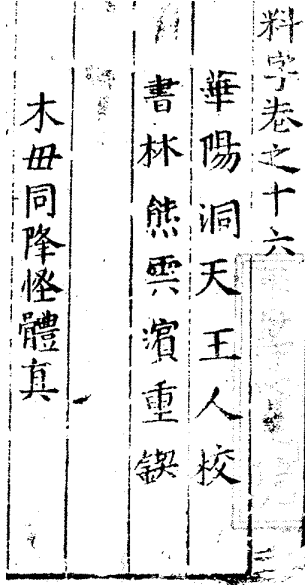 料字卷之十六
華陽洞天王人校
書林熊雲濱重鍥
木毌同降怪體真